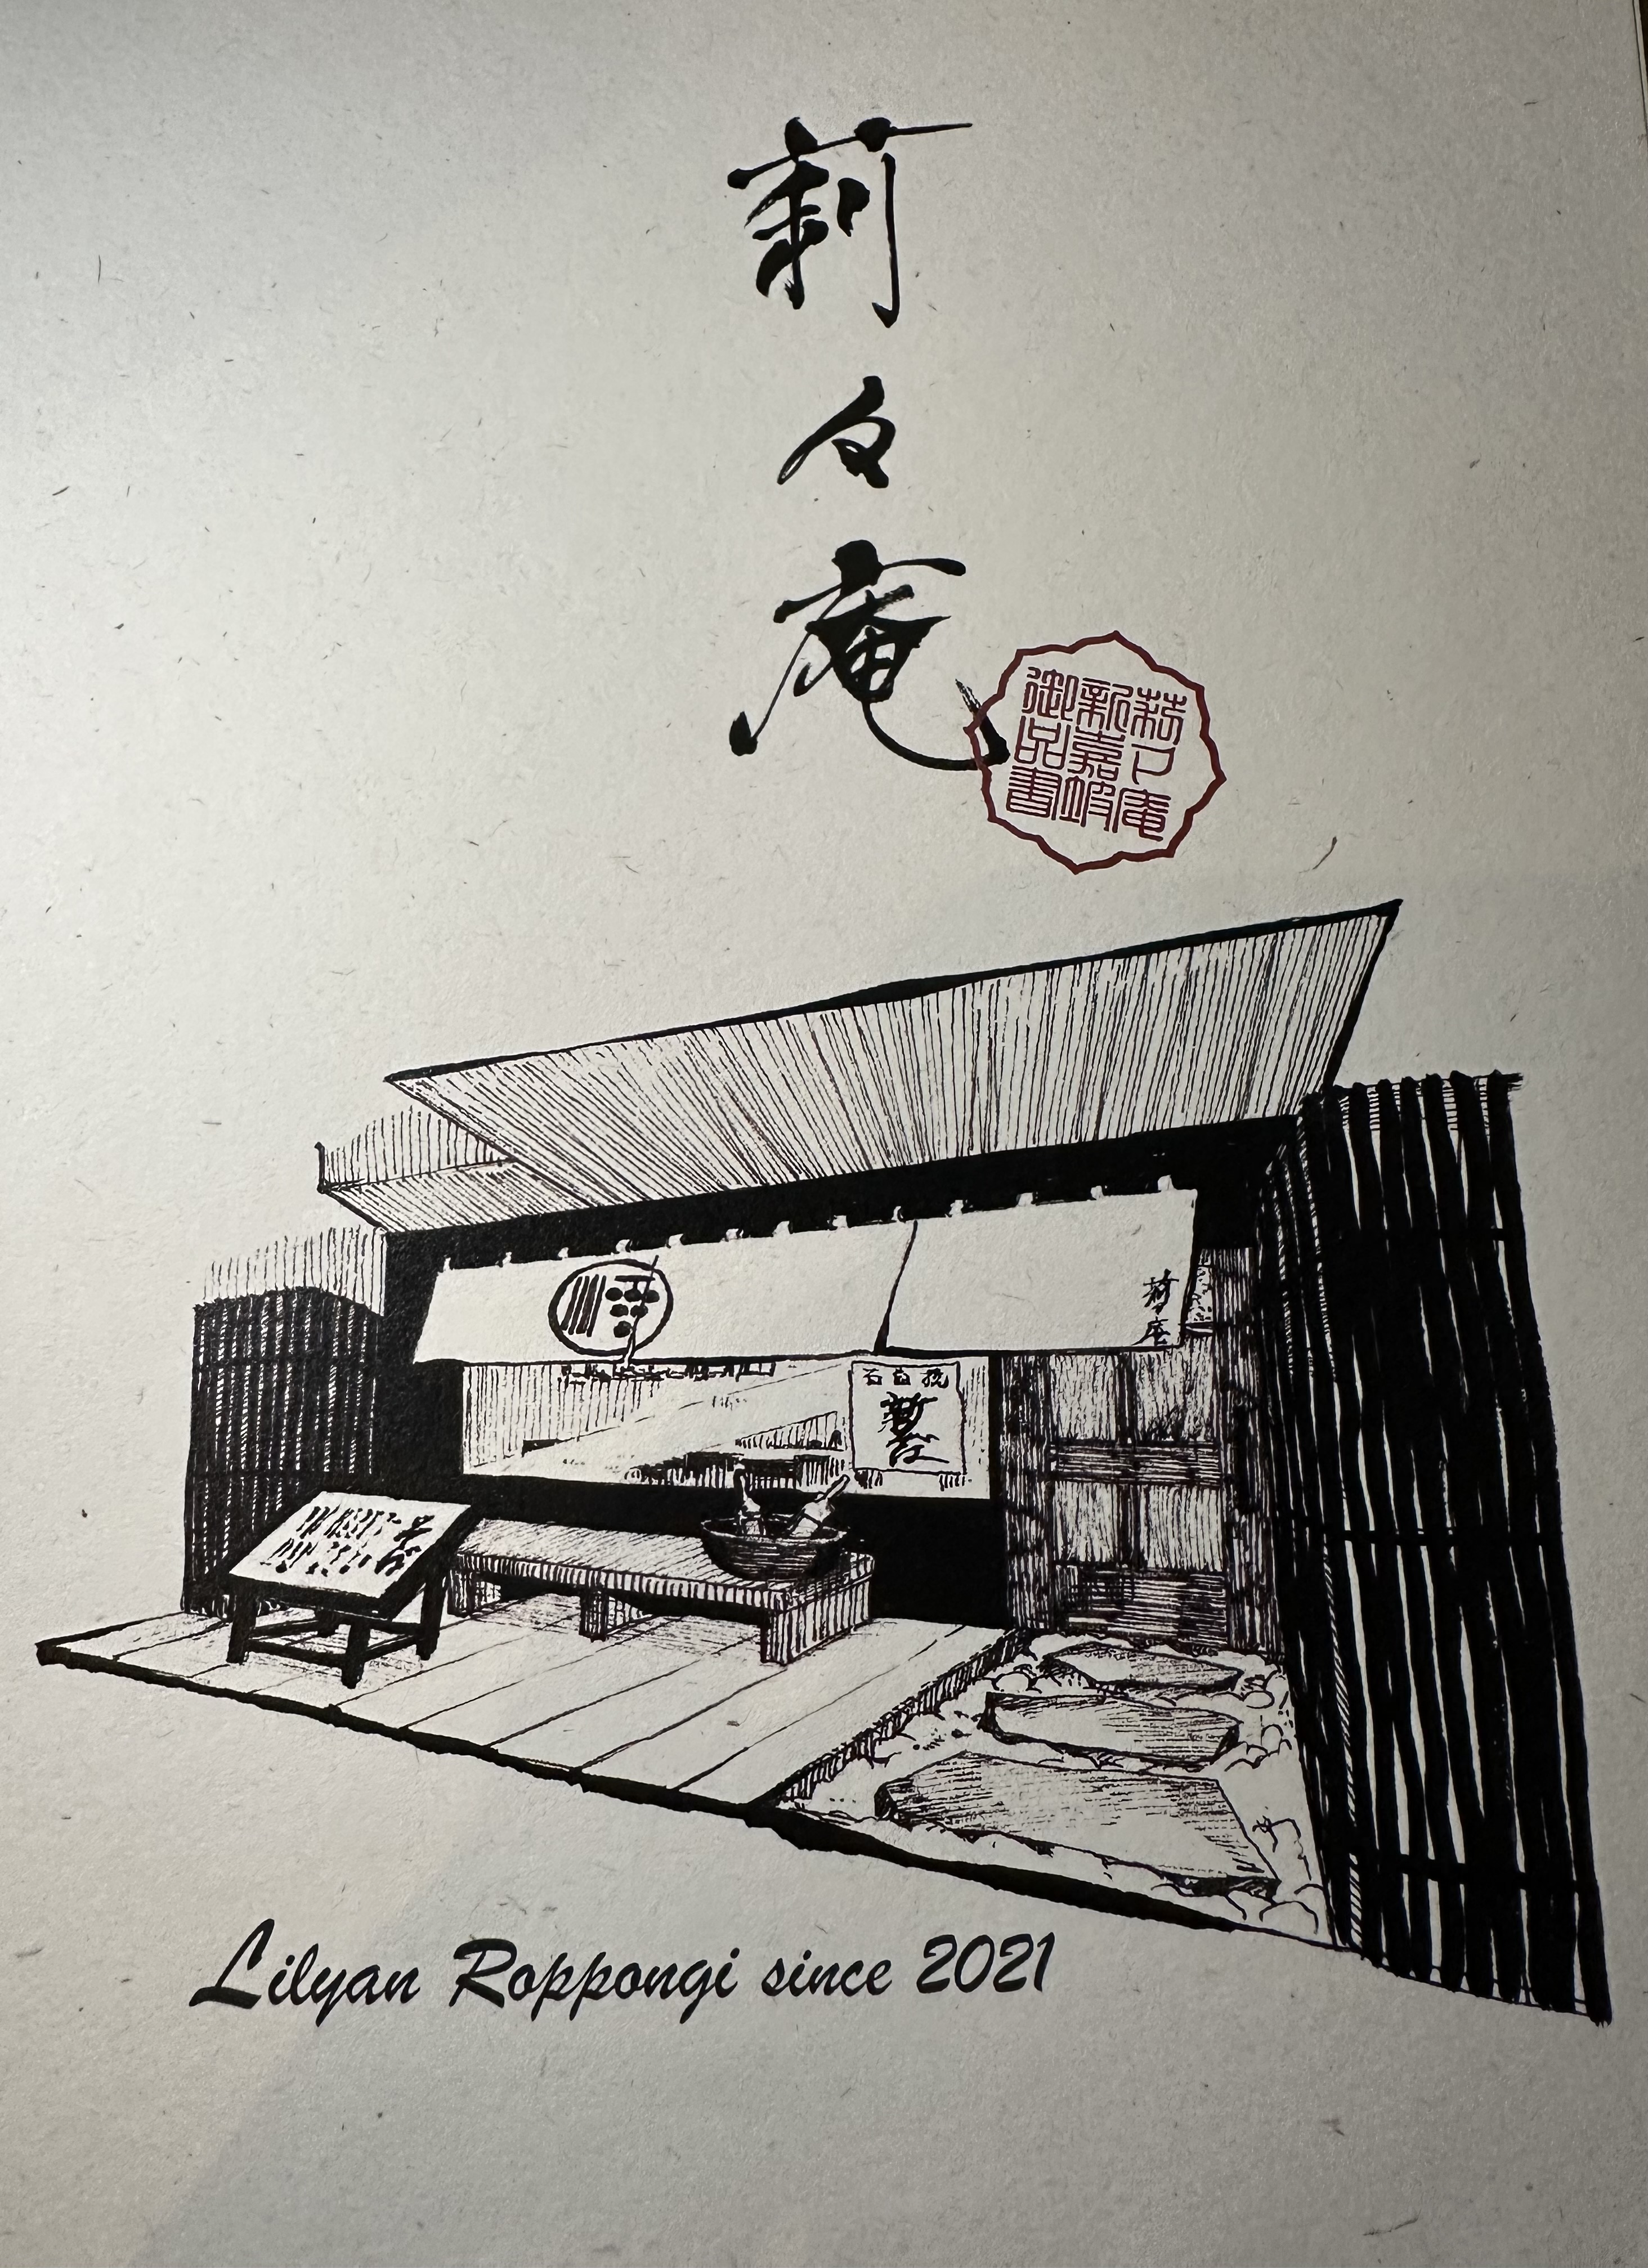 莉々庵
莉々庵
新嘉坡
御品書
莉々庵
石臼挽
蕎麦
Lilyan Roppongi since 2021